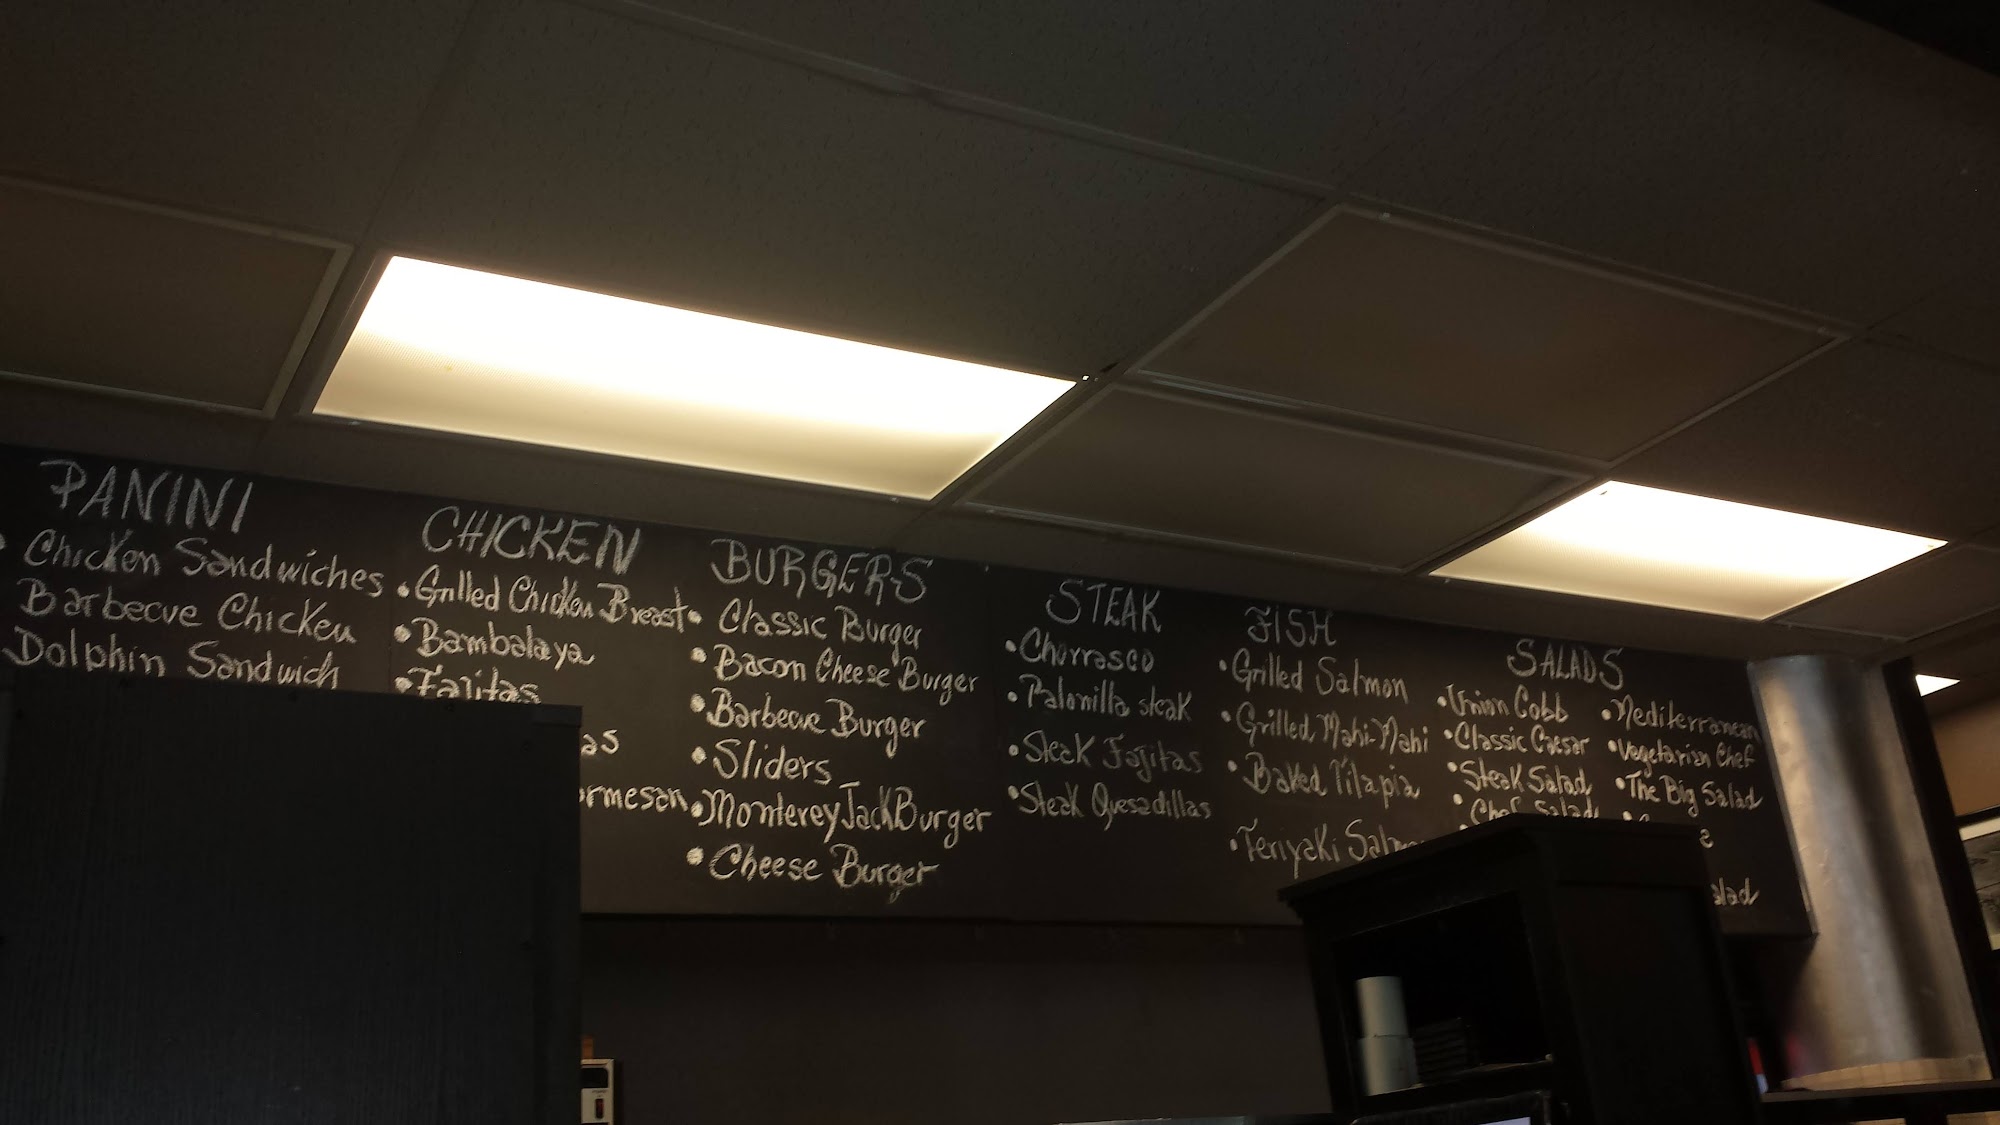 PANINI
• Chicken Sandwiches
Barbecue Chicken
Dolphin Sandwich
CHICKEN
• Grilled Chicken Breast
• Bambalaya
• Fajitas
BURGERS
• Classic Burger
• Bacon Cheese Burger
• Barbecue Burger
• Sliders
• Monterey Jack Burger
• Cheese Burger
STEAK
• Churrasco
• Palomilla steak
• Steak Fajitas
• Steak Quesadillas
FISH
• Grilled Salmon
• Grilled Mahi-Mahi
• Baked Tilapia
• Teriyaki
SALADS
• Union Cobb
• Classic Caesar
• Steak Salad
• Chef Salad
• Mediterranean
• Vegetarian Chef
• The Big Salad